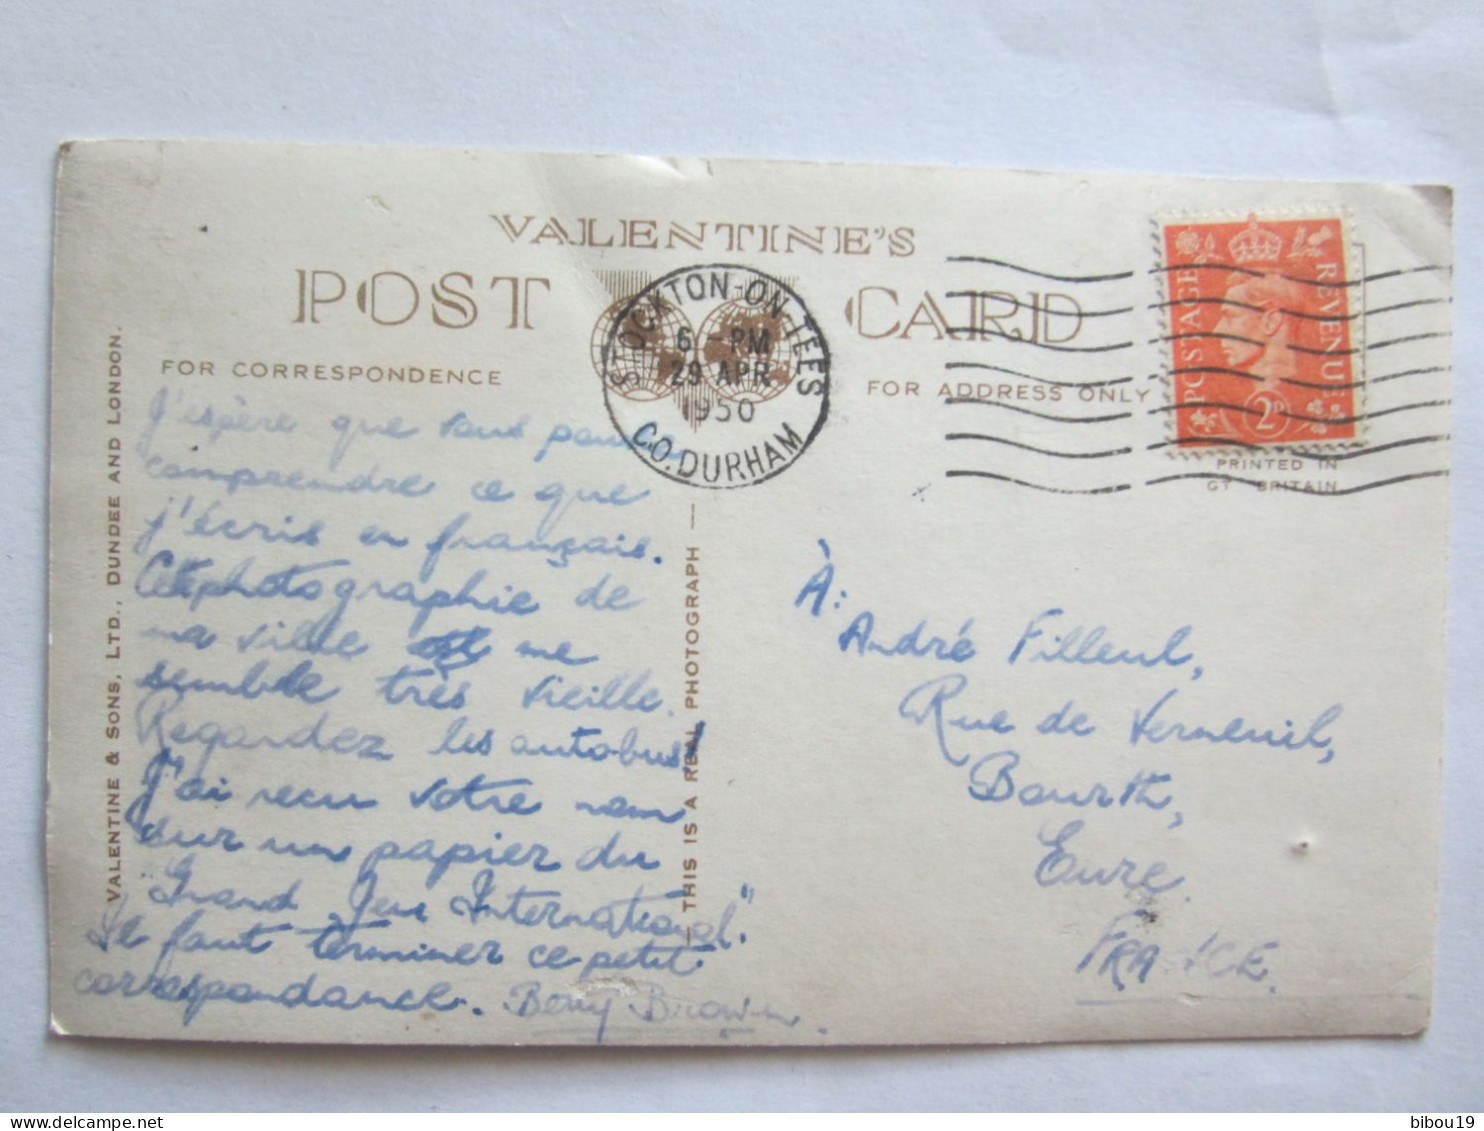 VALENTINE'S
POST CARD
FOR CORRESPONDENCE
FOR ADDRESS ONLY
STOCKTON-ON-TEES
6 - PM
29 APR
1950
CO. DURHAM
POSTAGE
REVENUE
2D
PRINTED IN
GT BRITAIN
VALENTINE & SONS, LTD., DUNDEE AND LONDON.
THIS IS A REAL PHOTOGRAPH
J'espère que vous
comprendre ce que
j'écris en français.
Cette photographie de
ma ville me
semble très vieille.
Regardez les autobus!
J'ai recu votre nom
sur un papier du
"Grand Jeu International."
Il faut terminer ce petit
correspondance. Berry Brown.
À:
André Filleul,
Rue de Verneuil,
Bourth,
Eure.
FRANCE.
bibou19